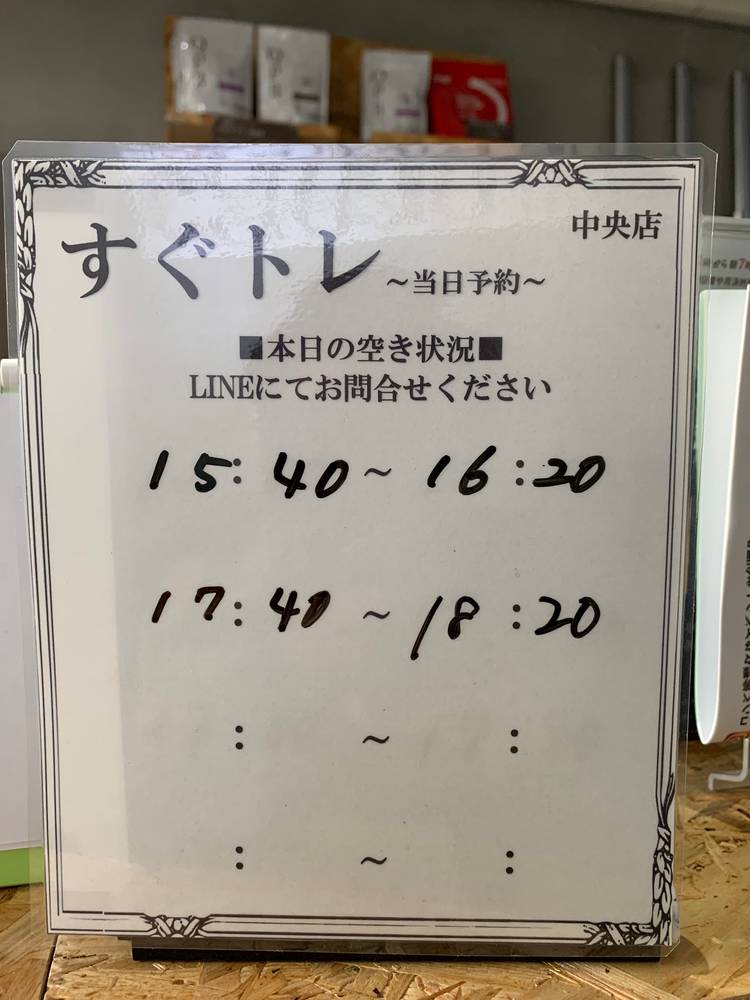 中央店
すぐトレ ～当日予約～
■本日の空き状況■
LINEにてお問合せください
15:40～16:20
17:40～18:20
:～:
:～: